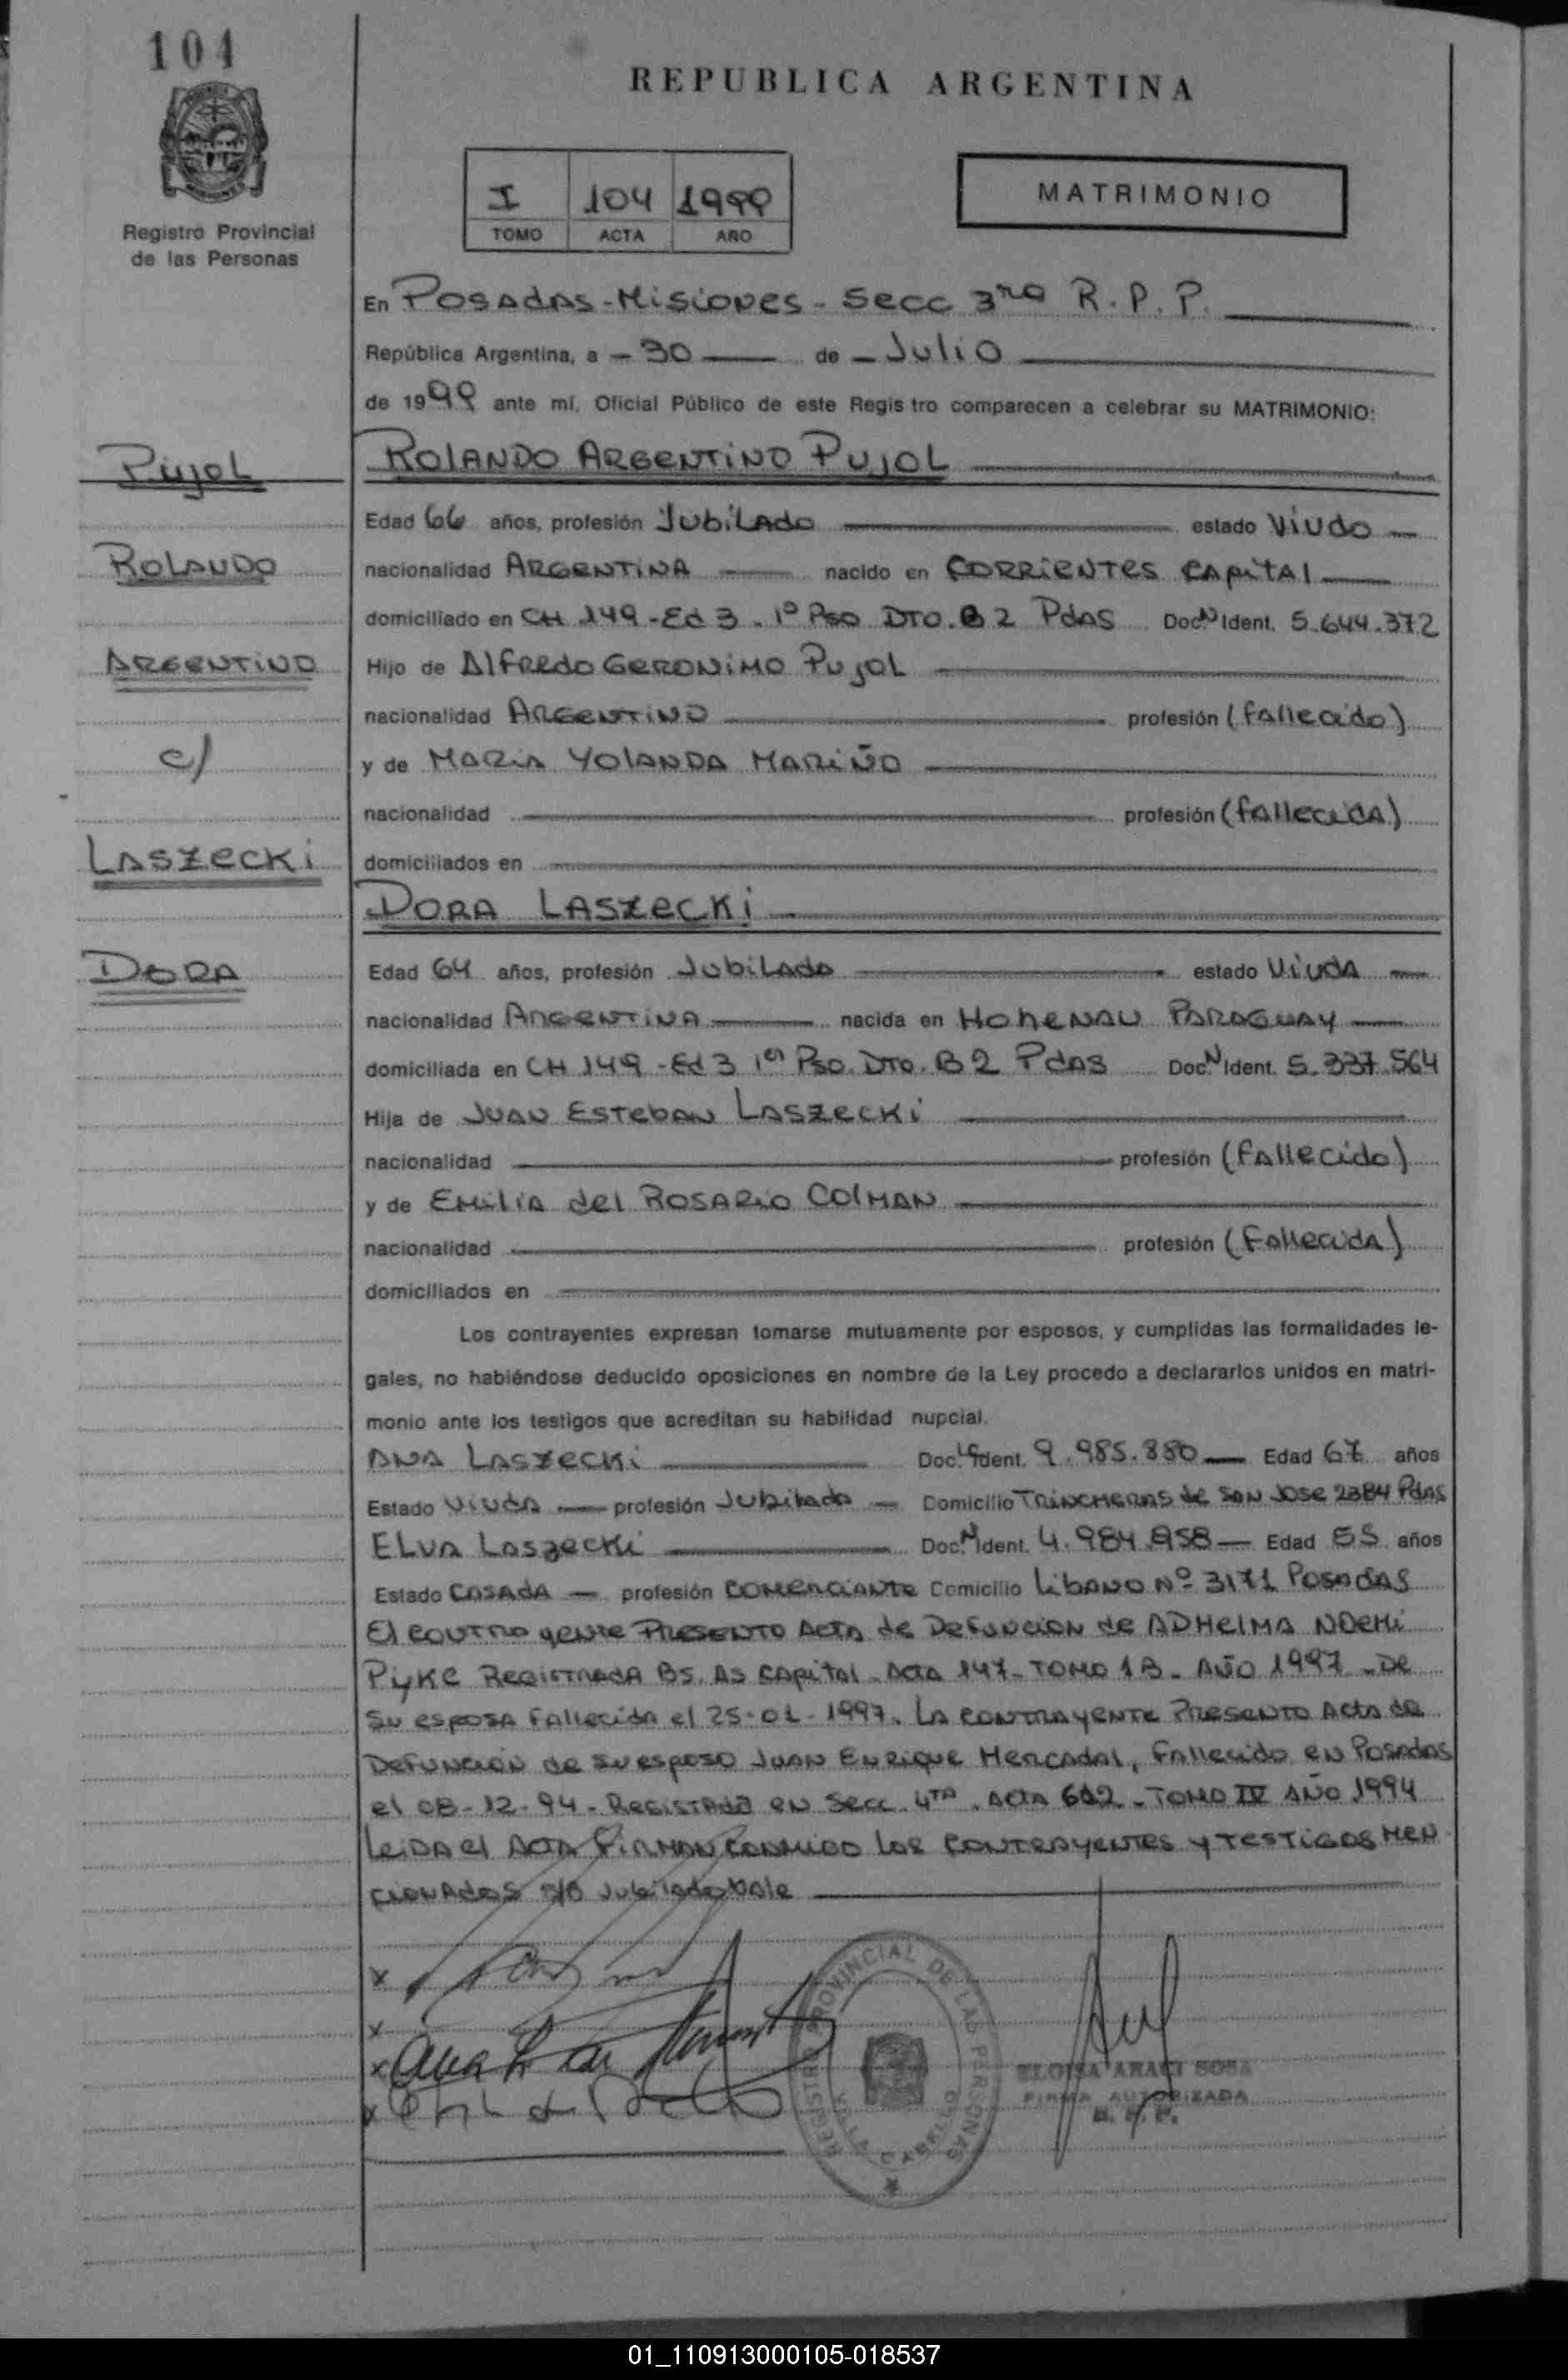 104
REPUBLICA ARGENTINA
Registro Provincial
de las Personas
I 104 1999
TOMO ACTA AÑO
MATRIMONIO
En Posadas - Misiones - Secc 3ra R.P.P.
República Argentina, a - 30 de - Julio
de 1999 ante mí, Oficial Público de este Registro comparecen a celebrar su MATRIMONIO:
Pujol
Rolando Argentino Pujol
Edad 66 años, profesión Jubilado estado Viudo
Rolando
nacionalidad Argentina nacido en Corrientes Capital
domiciliado en CH 149 - Ed 3 - 1º Pso Dto. B 2 Pdas Doc.N Ident. 5.644.372
Argentino
Hijo de Alfredo Geronimo Pujol
nacionalidad Argentino profesión (fallecido)
c/
y de Maria Yolanda Mariño
nacionalidad profesión (fallecida)
Laszecki
domiciliados en
Dora Laszecki
Dora
Edad 64 años, profesión Jubilado estado Viuda
nacionalidad Argentina nacida en Hohenau Paraguay
domiciliada en CH 149 - Ed 3 1er Pso. Dto. B 2 Pdas Doc.N Ident. 5.337.564
Hija de Juan Esteban Laszecki
nacionalidad profesión (Fallecido)
y de Emilia del Rosario Colman
nacionalidad profesión (Fallecida)
domiciliados en
Los contrayentes expresan tomarse mutuamente por esposos, y cumplidas las formalidades le-
gales, no habiéndose deducido oposiciones en nombre de la Ley procedo a declararlos unidos en matri-
monio ante los testigos que acreditan su habilidad nupcial.
Ana Laszecki Doc. LC Ident. 9.985.880 Edad 67 años
Estado Viuda profesión Jubilado Domicilio Trincheras de San Jose 2384 Pdas
Elva Laszecki Doc.N Ident. 4.984.958 Edad 55 años
Estado Casada profesión Comerciante Domicilio Libano Nº 3171 Posadas
El contrayente Presento Acta de Defuncion de Adhelma Noemi
Pyke Registrada Bs. As Capital - Acta 147 - Tomo 1 B - Año 1997 - De
su esposa Fallecida el 25-01-1997. La contrayente Presento Acta de
Defuncion de su esposo Juan Enrique Mercadal, Fallecido en Posadas
el 08-12-94 - Registrada en Secc. 4ta. Acta 602 - Tomo IV Año 1994
Leida el Acta Firman conmigo los contrayentes y testigos men
cionados s/b Jubilado Vale
x
x
x Ana
x
REGISTRO PROVINCIAL DE LAS PERSONAS
ELOISA ARACI SOSA
FIRMA AUTORIZADA
R. P. P.
01_110913000105-018537